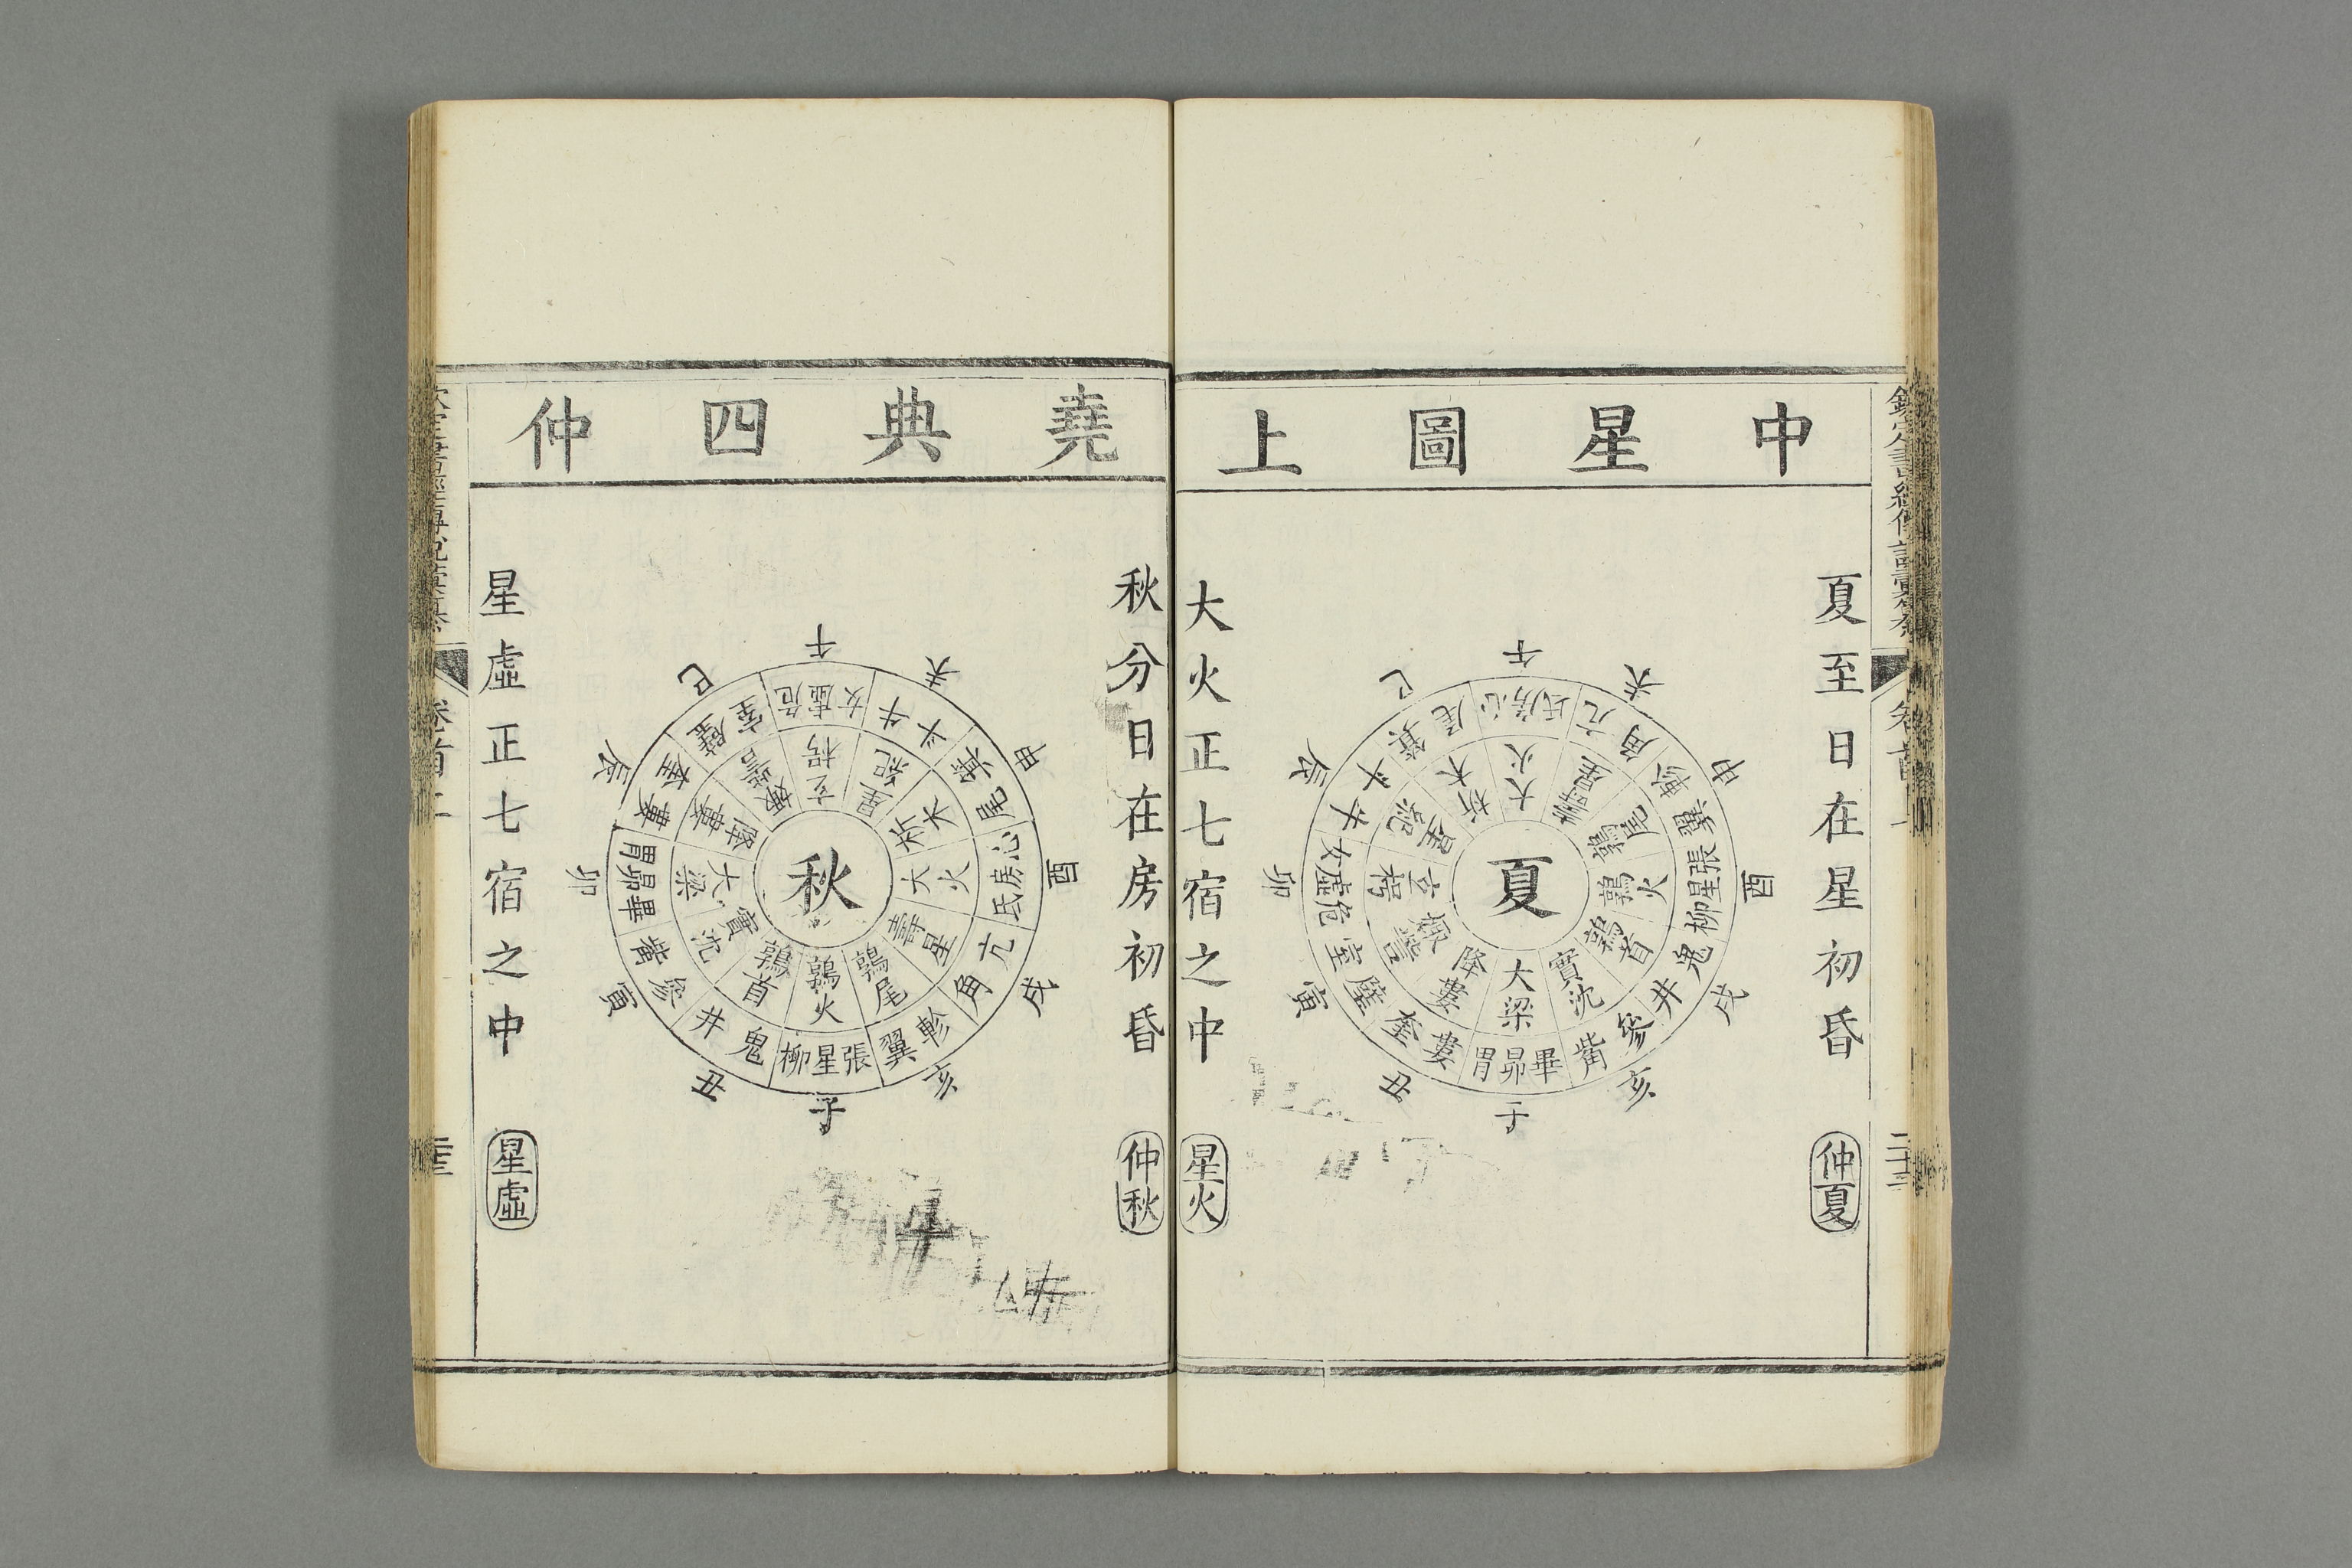 欽定書經傳說彙纂
中星圖上
夏至日在星初昏
仲夏
午
未
申
酉
戌
亥
子
丑
寅
卯
辰
巳
氐房心
角亢
翼軫
柳星張
井鬼
觜參
胃昴畢
奎婁
室壁
女虛危
斗牛
尾箕
大火
壽星
鶉尾
鶉火
鶉首
實沈
大梁
降婁
娵訾
玄枵
星紀
析木
夏
大火正七宿之中
星火
堯典四仲
秋分日在房初昏
仲秋
午
未
申
酉
戌
亥
子
丑
寅
卯
辰
巳
女虛危
斗牛
尾箕
氐房心
角亢
翼軫
柳星張
井鬼
觜參
胃昴畢
奎婁
室壁
玄枵
星紀
析木
大火
壽星
鶉尾
鶉火
鶉首
實沈
大梁
降婁
娵訾
秋
星虛正七宿之中
星虛